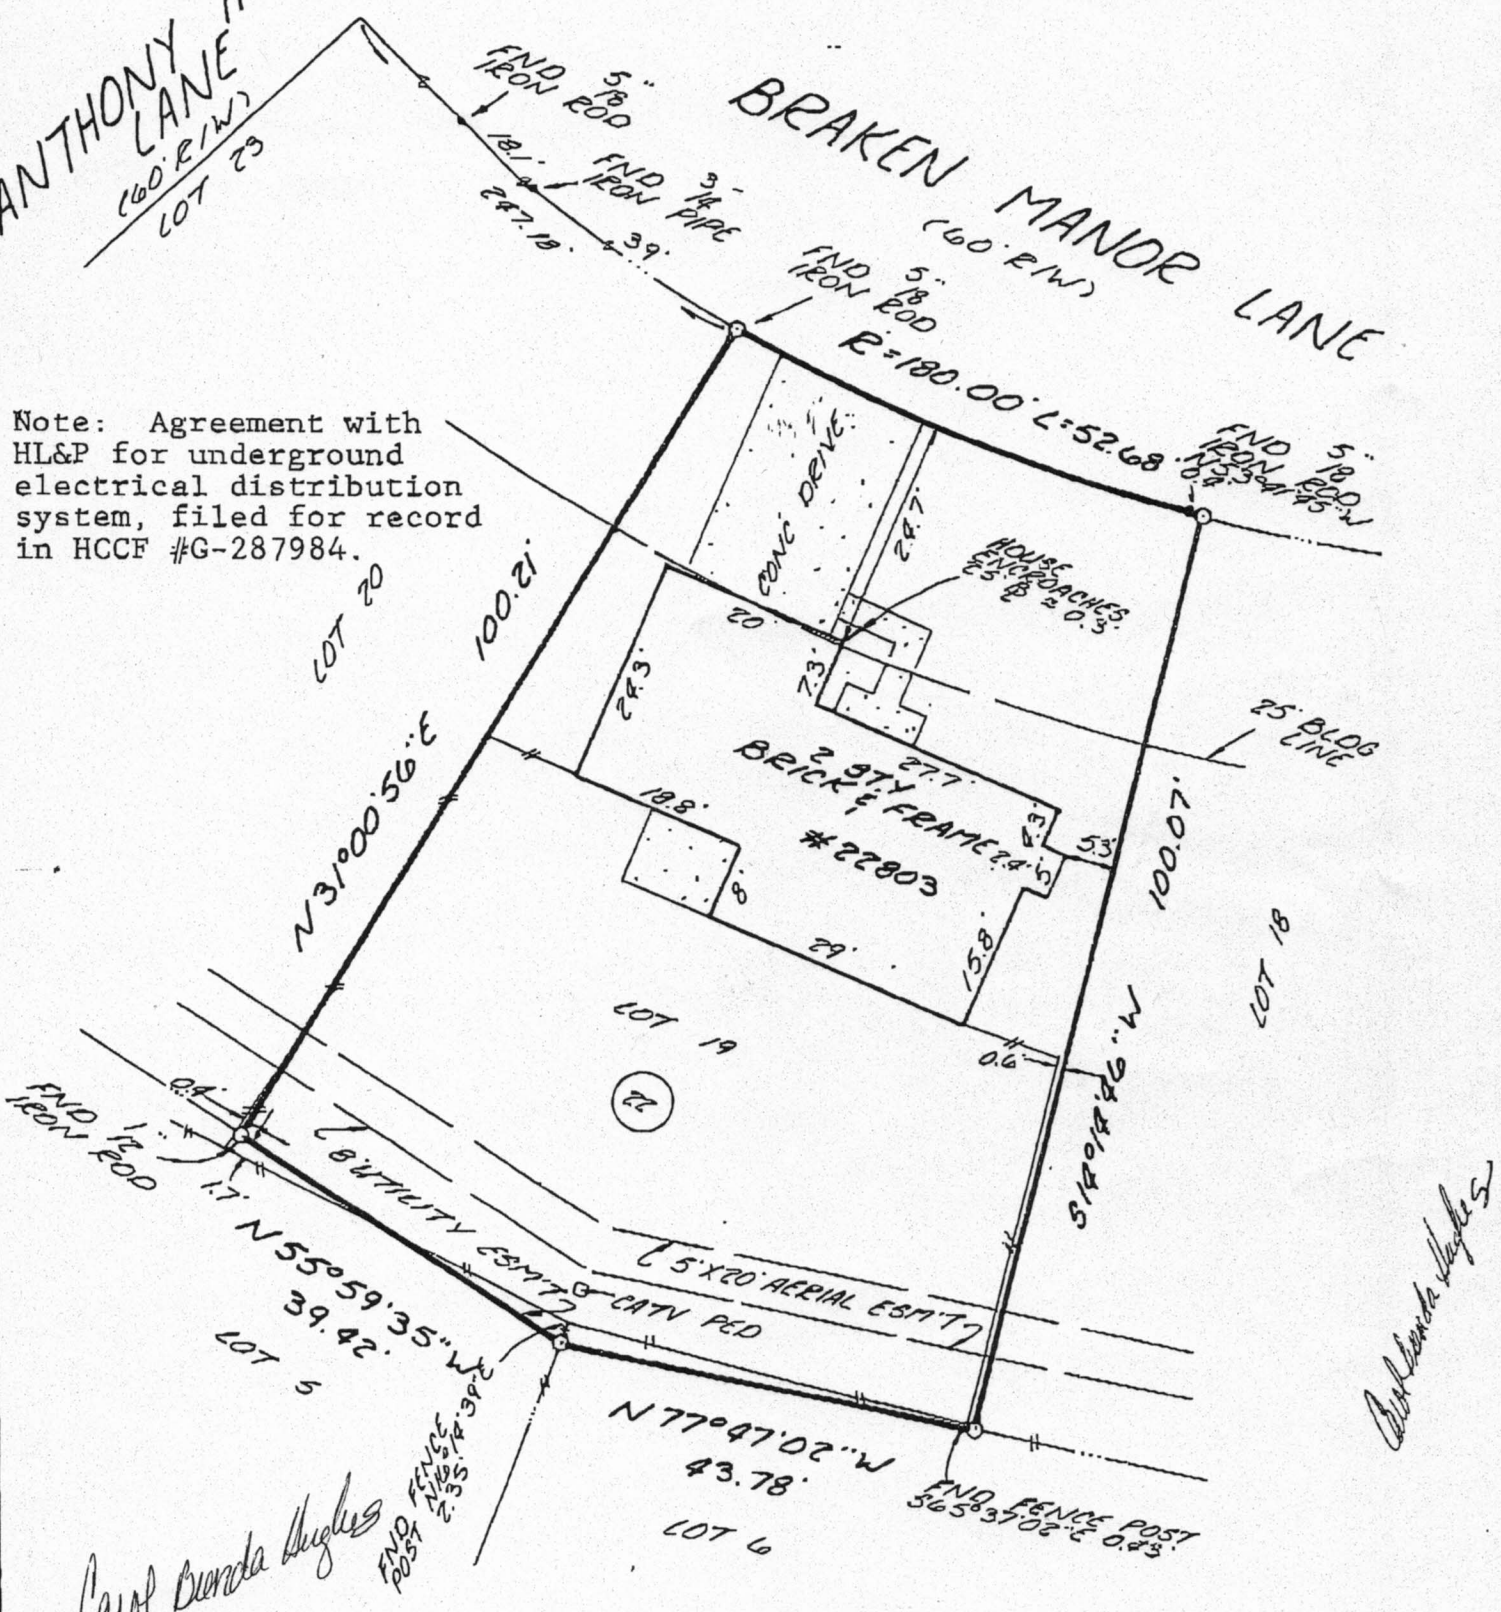 ANTHONY
LANE
(60' R/W)
LOT 23
FND 5/8"
IRON ROD
18.1'
FND 3/4"
IRON PIPE
247.18'
39'
BRAKEN MANOR LANE
(60' R/W)
FND 5/8"
IRON ROD
R=180.00' L=52.68'
FND 5/8"
IRON ROD
0.4'
Note: Agreement with
HL&P for underground
electrical distribution
system, filed for record
in HCCF #G-287984.
LOT 20
100.21'
N 31°00'56" E
CONC DRIVE
24.7'
HOUSE
ENCROACHES
25' ℄ ≈ 0.3'
20'
24.3'
7.3'
25' BLDG
LINE
2 STY
BRICK & FRAME
#22803
27.7'
4.3'
2.4'
5'
5.3'
18.8'
8'
29'
15.8'
100.07'
S 14°14'46" W
LOT 18
LOT 19
22
0.6'
0.4'
FND 1/2"
IRON ROD
1.7'
8' UTILITY ESM'T
5'X20' AERIAL ESM'T
CATV PED
N 55°59'35" W
39.42'
LOT 5
FND FENCE
POST N16°14'39"E
2.35'
N 77°47'02" W
43.78'
LOT 6
FND FENCE POST
S65°37'02"E 0.43'
Carol Brenda Hughes
Carol Brenda Hughes